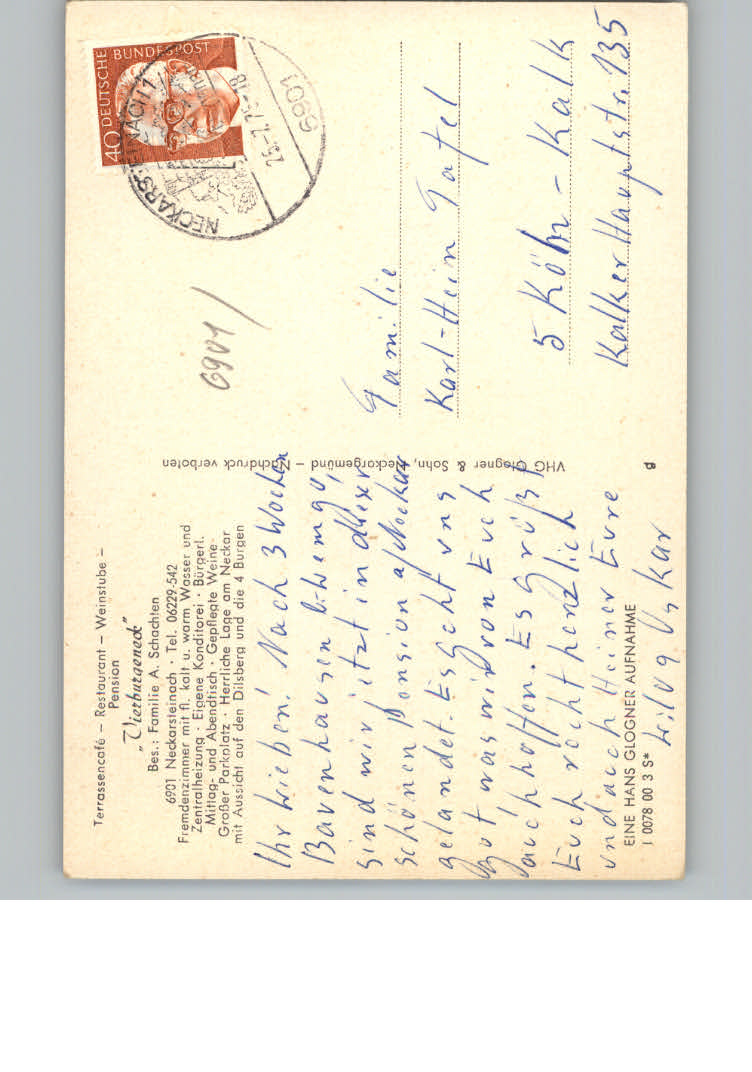 Terrassencafé – Restaurant – Weinstube –
Pension
„Vierburgeneck"
Bes.: Familie A. Schachten
6901 Neckarsteinach · Tel. 06229-542
Fremdenzimmer mit fl. kalt u. warm Wasser und
Zentralheizung · Eigene Konditorei · Bürgerl.
Mittag- und Abendtisch · Gepflegte Weine
Großer Parkplatz · Herrliche Lage am Neckar
mit Aussicht auf den Dilsberg und die 4 Burgen
Ihr Lieben! Nach 3 Wochen
Bavenhausen b. Lemgo,
sind wir jetzt in dieser
schönen Pension a/Neckar
gelandet. Es geht uns
gut was wir von Euch
auch hoffen. Es grüßt
Euch recht herzlich
und auch Heiner Eure
Oskar
EINE HANS GLOGNER AUFNAHME
I 0078 00 3 S*
VHG Glogner & Sohn, Neckargemünd – Nachdruck verboten
g
40 DEUTSCHE BUNDESPOST
NECKARSTEINACH 1
25.-7.75-18
6901
6901
Familie
Karl-Hein Gafel
5 Köln-Kalk
Kalker Hauptstr. 135